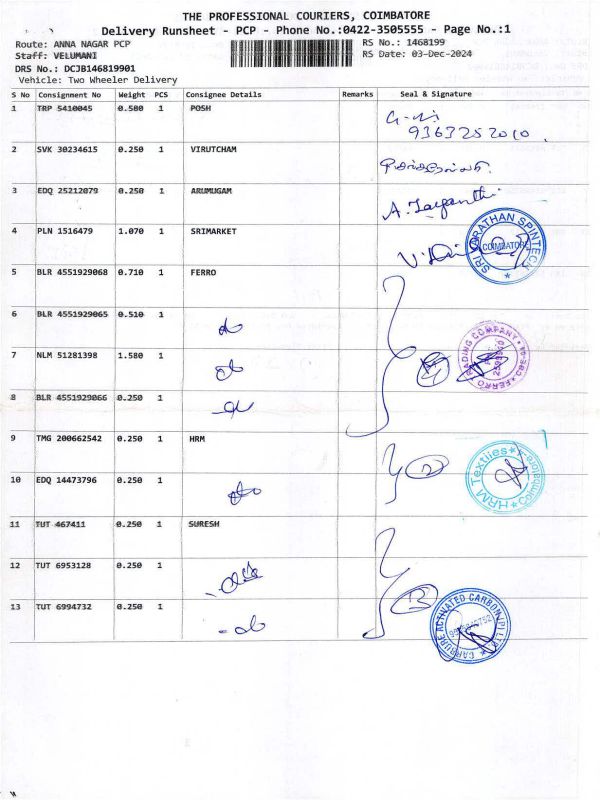 THE PROFESSIONAL COURIERS, COIMBATORE
Delivery Runsheet - PCP - Phone No.:0422-3505555 - Page No.:1
Route: ANNA NAGAR PCP RS No.: 1468199
Staff: VELUMANI RS Date: 03-Dec-2024
DRS No.: DCJB146819901
Vehicle: Two Wheeler Delivery
S No Consignment No Weight PCS Consignee Details Remarks Seal & Signature
1 TRP 5410045 0.500 1 POSH
9363252010.
2 SVK 30234615 0.250 1 VIRUTCHAM
3 EDQ 25212079 0.250 1 ARUMUGAM
A. Jayanthi
4 PLN 1516479 1.070 1 SRIMARKET
SRI VARATHAN SPINTECH
COIMBATORE
5 BLR 4551929068 0.710 1 FERRO
6 BLR 4551929065 0.510 1
7 NLM 51281398 1.580 1
FERRO TRADING COMPANY
8 BLR 4551929066 0.250 1
9 TMG 200662542 0.250 1 HRM
2
HRM Textiles
Coimbatore
10 EDQ 14473796 0.250 1
11 TUT 467411 0.250 1 SURESH
12 TUT 6953128 0.250 1
13 TUT 6994732 0.250 1
3
ACTIVATED CARBON (P) LTD